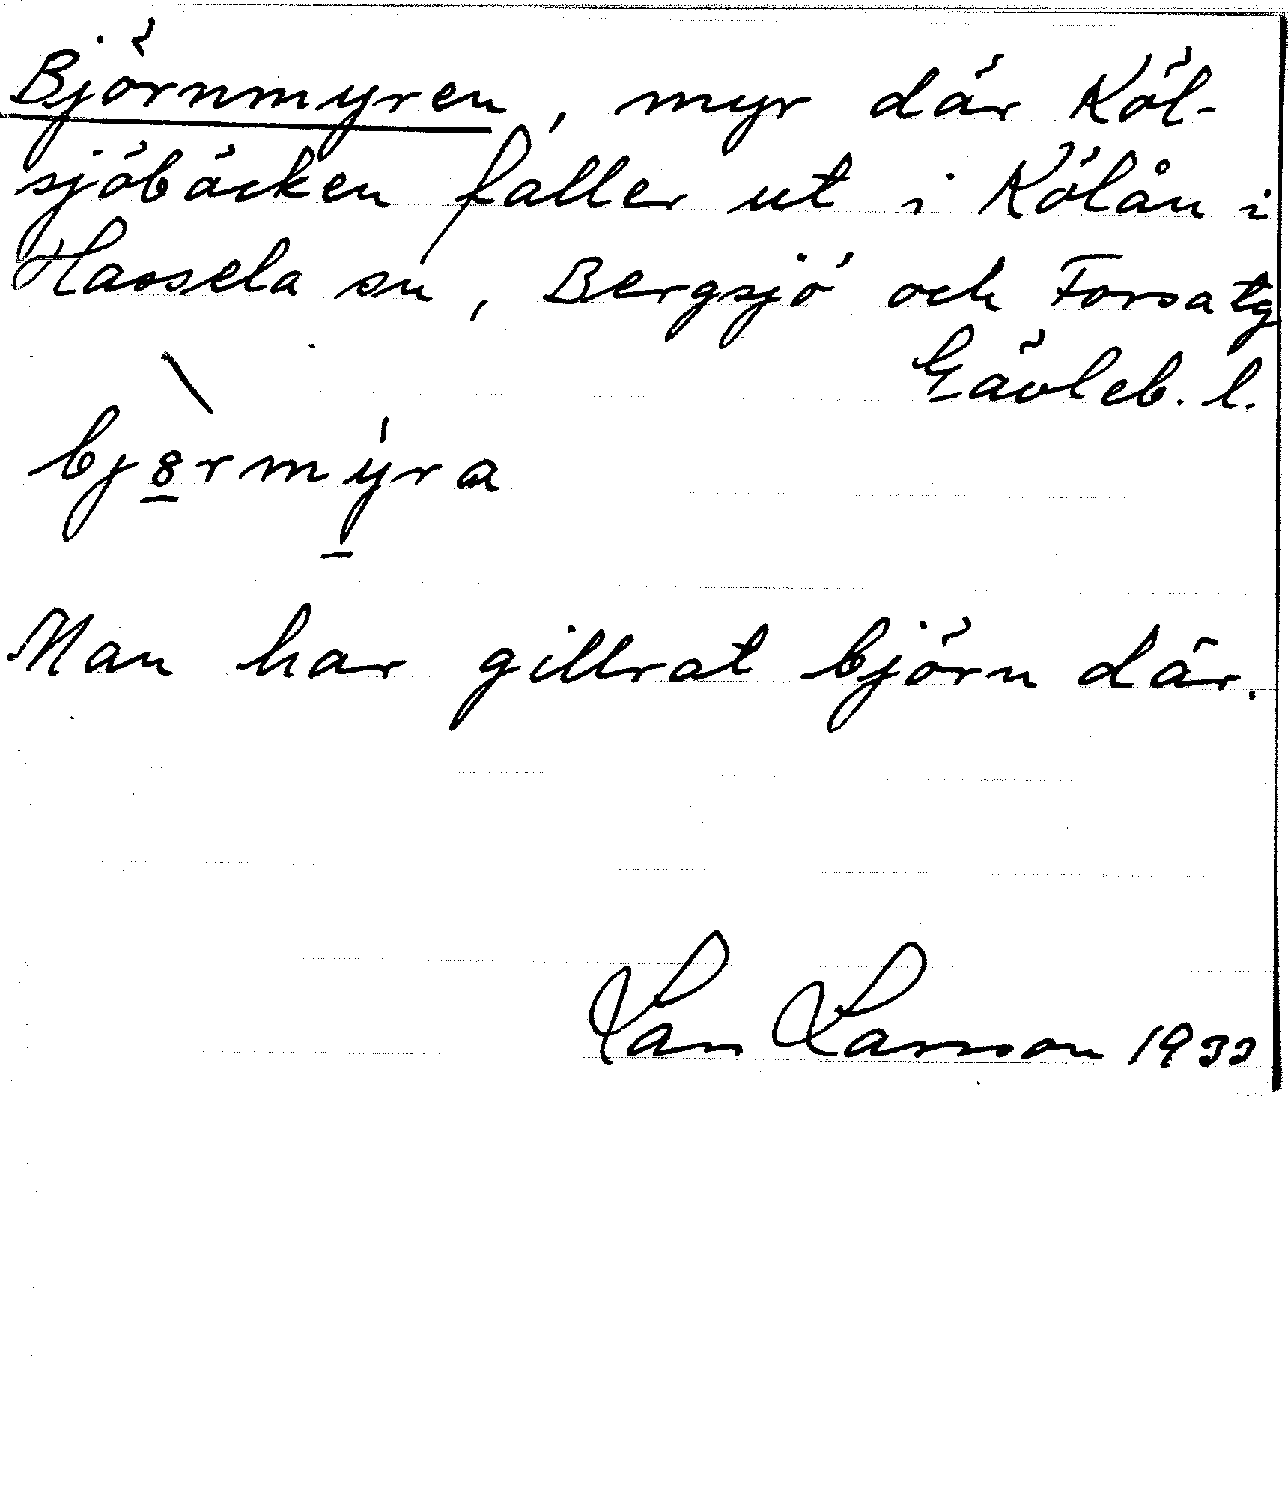 Björnmyren, myr där Köl-
sjöbäcken faller ut i Kölån i
Hassela sn, Bergsjö och Forsa tg
Gävleb. l.
bj8rmyra
Man har gillrat björn där.
Lars Larsson 1932